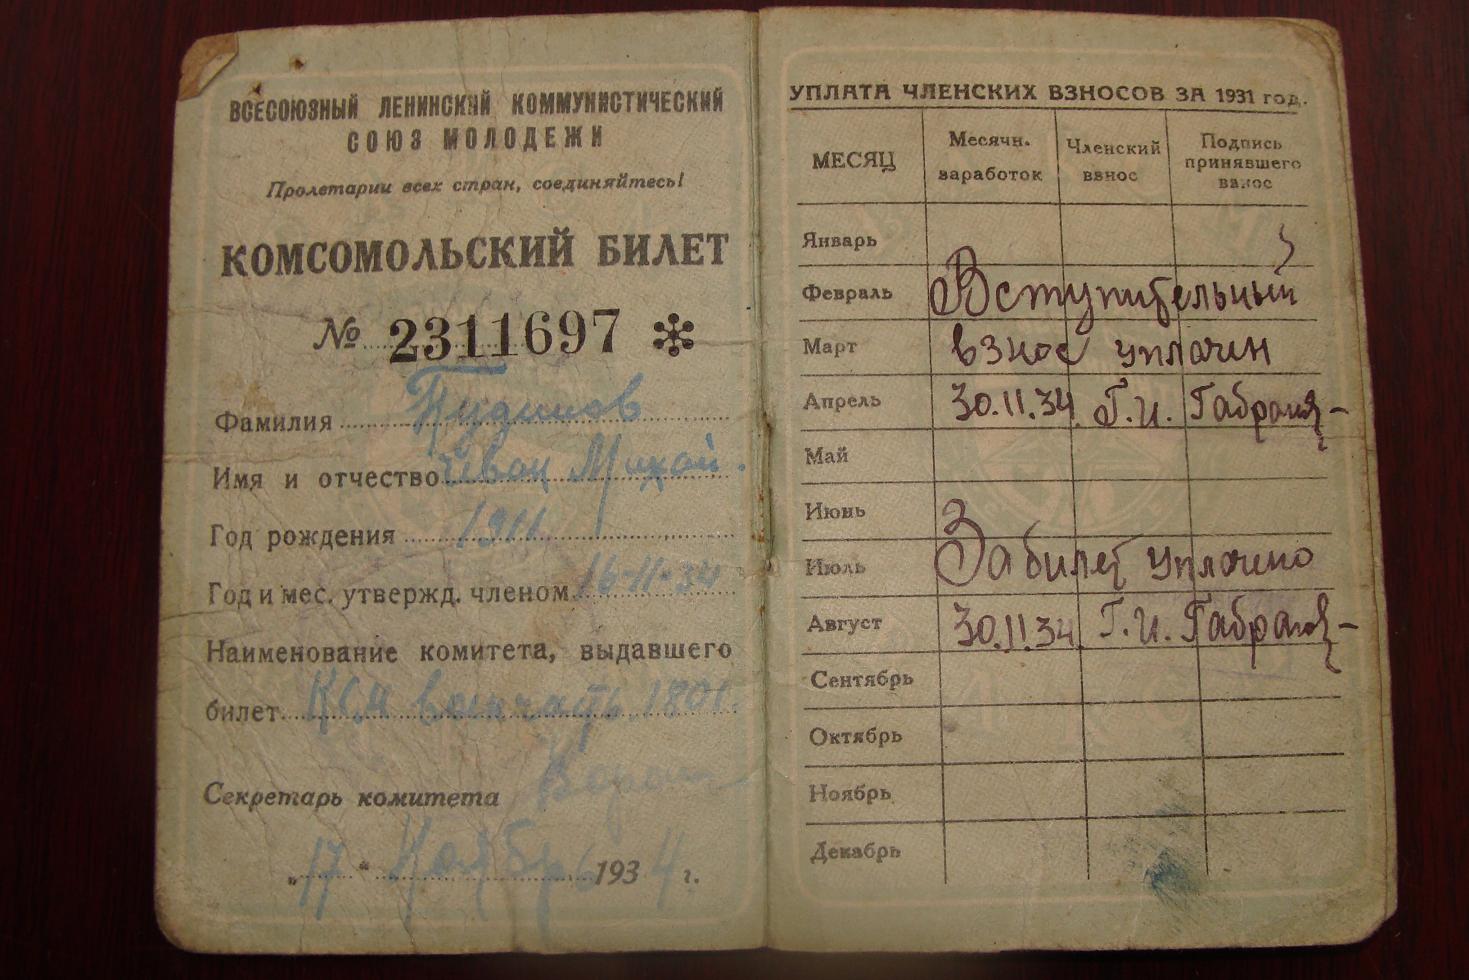 ВСЕСОЮЗНЫЙ ЛЕНИНСКИЙ КОММУНИСТИЧЕСКИЙ
СОЮЗ МОЛОДЕЖИ
Пролетарии всех стран, соединяйтесь!
КОМСОМОЛЬСКИЙ БИЛЕТ
№ 2311697
Фамилия
Имя и отчество Иван Михай.
Год рождения 1911
Год и мес. утвержд. членом 16-11-34
Наименование комитета, выдавшего
билет КСМ 1801.
Секретарь комитета
„17 “ Ноября 1934 г.
УПЛАТА ЧЛЕНСКИХ ВЗНОСОВ ЗА 1931 год.
МЕСЯЦ
Месячн. заработок
Членский взнос
Подпись принявшего взнос
Январь
Февраль Вступительный
Март взнос уплачен
Апрель 30.11.34 Г.И.
Май
Июнь
Июль За билет уплачено
Август 30.11.34 Г.И.
Сентябрь
Октябрь
Ноябрь
Декабрь